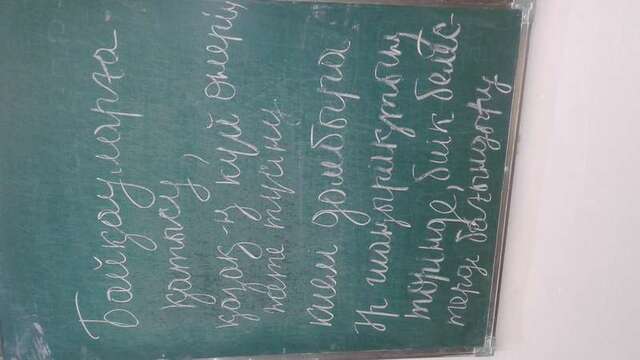 Байқауларға
қатысу,
қазақ-ң күй өнерін
жете түсіну.
киелі домбыра
әр шаңырақтың
төрінде, биік беліс-
терді бағындыру